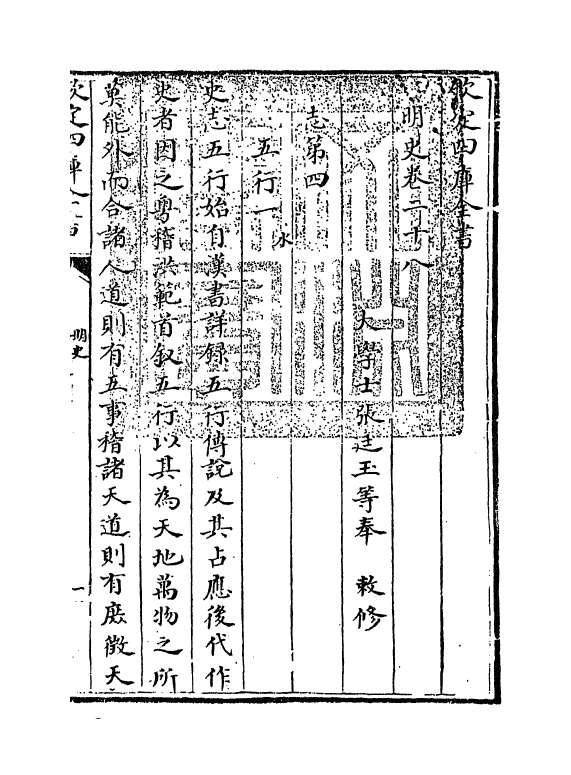 欽定四庫全書
明史卷二十八
大學士張廷玉等奉 敕修
志第四
五行一 水
史志五行始自漢書詳録五行傳說及其占應後代作
史者因之粤稽洪範首叙五行以其為天地萬物之所
莫能外而合諸人道則有五事稽諸天道則有庶徵天
欽定四庫全書
明史
一